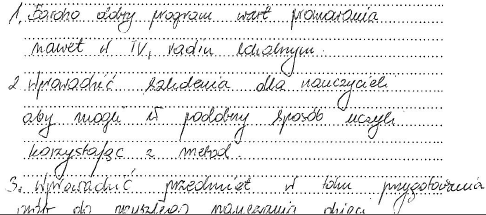 1. Bardzo dobry program wart promowania
nawet w TV, radiu lokalnym.
2. Wprowadzić szkolenia dla nauczycieli
aby mogli w podobny sposób uczyli
korzystając z metod.
3. Wprowadzić przedmiot w toku przygotowania
do nauczania dzieci